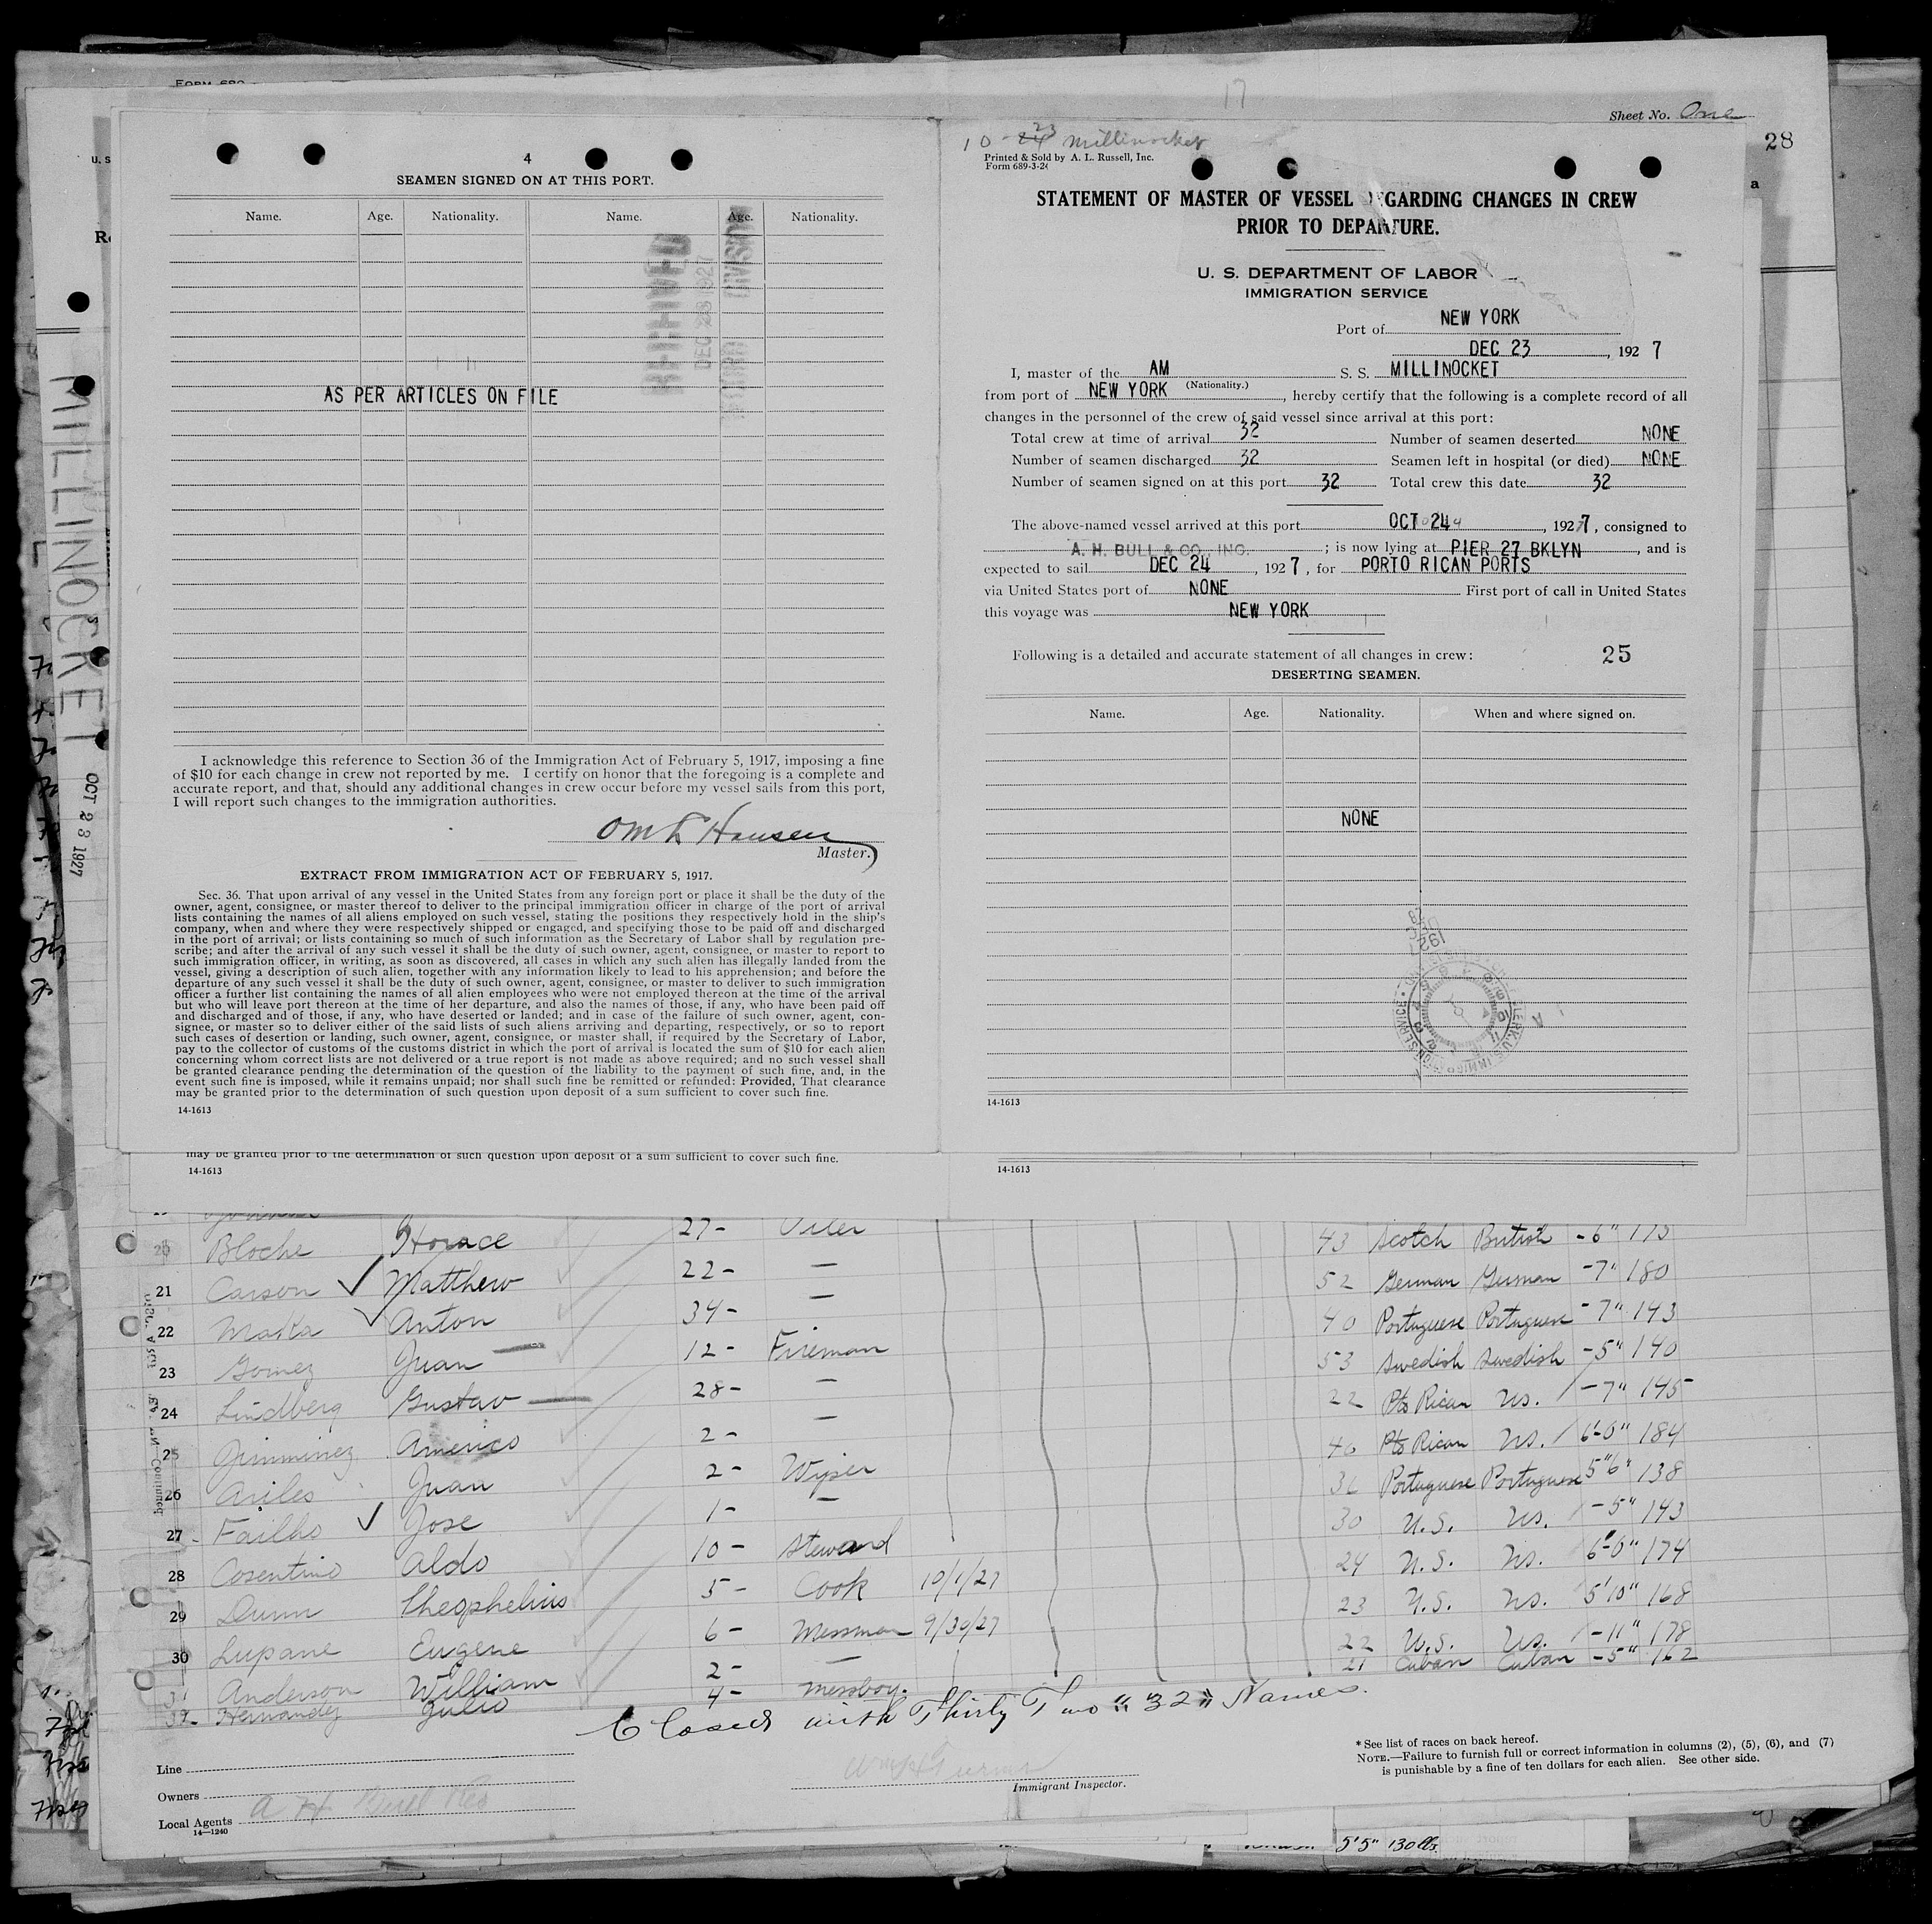 FORM 689
17
Sheet No. One
28
4
SEAMEN SIGNED ON AT THIS PORT.
Name. Age. Nationality. Name. Age. Nationality.
DEC 1927
DIVISION
AS PER ARTICLES ON FILE
I acknowledge this reference to Section 36 of the Immigration Act of February 5, 1917, imposing a fine
of $10 for each change in crew not reported by me. I certify on honor that the foregoing is a complete and
accurate report, and that, should any additional changes in crew occur before my vessel sails from this port,
I will report such changes to the immigration authorities.
Hansen
Master.
EXTRACT FROM IMMIGRATION ACT OF FEBRUARY 5, 1917.
Sec. 36. That upon arrival of any vessel in the United States from any foreign port or place it shall be the duty of the
owner, agent, consignee, or master thereof to deliver to the principal immigration officer in charge of the port of arrival
lists containing the names of all aliens employed on such vessel, stating the positions they respectively hold in the ship's
company, when and where they were respectively shipped or engaged, and specifying those to be paid off and discharged
in the port of arrival; or lists containing so much of such information as the Secretary of Labor shall by regulation pre-
scribe; and after the arrival of any such vessel it shall be the duty of such owner, agent, consignee, or master to report to
such immigration officer, in writing, as soon as discovered, all cases in which any such alien has illegally landed from the
vessel, giving a description of such alien, together with any information likely to lead to his apprehension; and before the
departure of any such vessel it shall be the duty of such owner, agent, consignee, or master to deliver to such immigration
officer a further list containing the names of all alien employees who were not employed thereon at the time of the arrival
but who will leave port thereon at the time of her departure, and also the names of those, if any, who have been paid off
and discharged and of those, if any, who have deserted or landed; and in case of the failure of such owner, agent, con-
signee, or master so to deliver either of the said lists of such aliens arriving and departing, respectively, or so to report
such cases of desertion or landing, such owner, agent, consignee, or master shall, if required by the Secretary of Labor,
pay to the collector of customs of the customs district in which the port of arrival is located the sum of $10 for each alien
concerning whom correct lists are not delivered or a true report is not made as above required; and no such vessel shall
be granted clearance pending the determination of the question of the liability to the payment of such fine, and, in the
event such fine is imposed, while it remains unpaid; nor shall such fine be remitted or refunded: Provided, That clearance
may be granted prior to the determination of such question upon deposit of a sum sufficient to cover such fine.
14-1613
10-23 Millinocket
Printed & Sold by A. L. Russell, Inc.
Form 689-3-24
STATEMENT OF MASTER OF VESSEL REGARDING CHANGES IN CREW
PRIOR TO DEPARTURE.
U. S. DEPARTMENT OF LABOR
IMMIGRATION SERVICE
Port of NEW YORK
DEC 23, 1927
I, master of the AM S. S. MILLINOCKET
from port of NEW YORK (Nationality.), hereby certify that the following is a complete record of all
changes in the personnel of the crew of said vessel since arrival at this port:
Total crew at time of arrival 32 Number of seamen deserted NONE
Number of seamen discharged 32 Seamen left in hospital (or died) NONE
Number of seamen signed on at this port 32 Total crew this date 32
The above-named vessel arrived at this port OCT 24, 1927, consigned to
A. H. BULL & CO., INC.; is now lying at PIER 27 BKLYN, and is
expected to sail DEC 24, 1927, for PORTO RICAN PORTS
via United States port of NONE First port of call in United States
this voyage was NEW YORK
Following is a detailed and accurate statement of all changes in crew: 25
DESERTING SEAMEN.
Name. Age. Nationality. When and where signed on.
NONE
14-1613
may be granted prior to the determination of such question upon deposit of a sum sufficient to cover such fine.
14-1613
14-1613
MILLINOCKET
OCT 23 1927
20 Bloche Horace 27- Oiler 43 Scotch British -6" 175
21 Carson Matthew 22- — 52 German German -7" 180
22 Maria Anton 34- — 40 Portuguese Portuguese -7" 143
23 Gomez Juan 12- Fireman 53 Swedish Swedish -5" 140
24 Lindberg Gustav 28- — 22 Pto Rican US. -7" 145
25 Jimminez Americo 2- — 40 Pto Rican US. 6'-0" 184
26 Aviles Juan 2- Wiper 36 Portuguese Portuguese 5"6" 138
27 Failho Jose 1- — 30 U.S. US. -5" 143
28 Cosentino Aldo 10- Steward 24 U.S. US. 6'-0" 174
29 Dunn Theophelius 5- Cook 10/1/27 23 U.S. US. 5'10" 168
30 Lupane Eugene 6- Messman 9/30/27 22 U.S. US. -11" 178
31 Anderson William 2- — 21 Cuban Cuban -5" 162
32- Hernandez Julio 4- Messboy.
Closed with Thirty Two "32" Names.
Line
Owners
Local Agents A H Bull
14—1240
Immigrant Inspector.
* See list of races on back hereof.
NOTE.—Failure to furnish full or correct information in columns (2), (5), (6), and (7)
is punishable by a fine of ten dollars for each alien. See other side.
5'5" 130 lbs